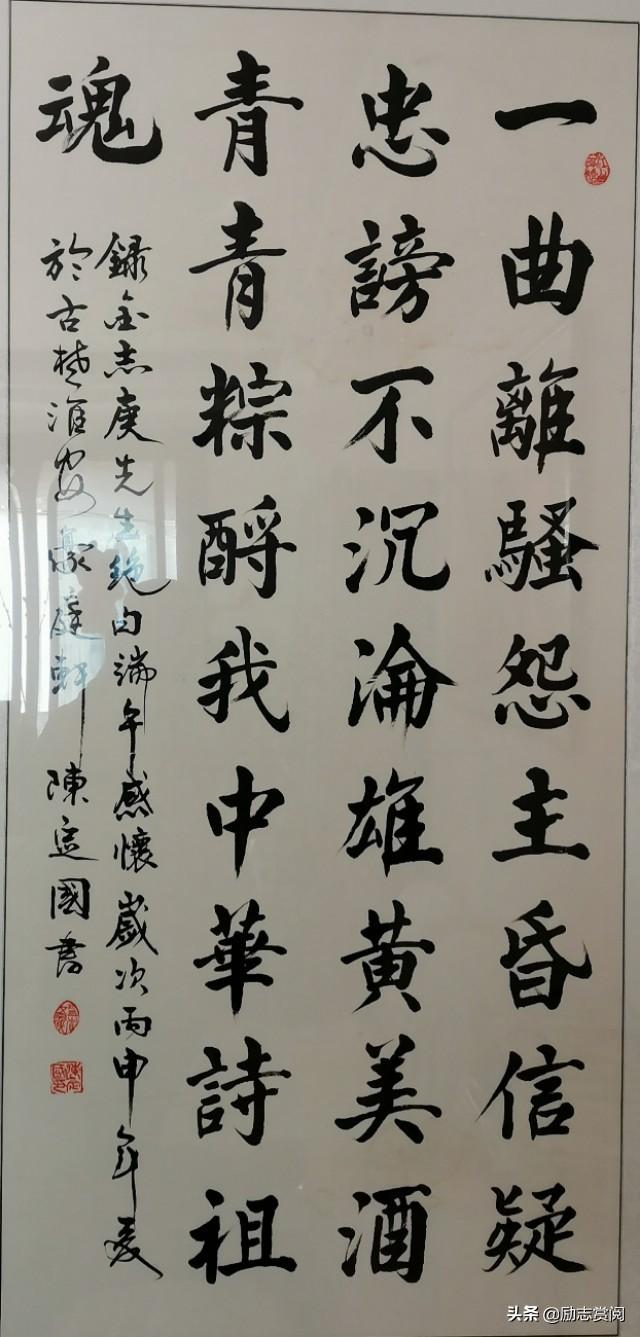 一曲離騷怨主昏信疑
忠謗不沉淪雄黄美酒
青青粽酹我中華詩祖
魂
録金志庚先生絶句端午感懷歲次丙申年夏
於古楚淮安豪達軒陳定國書
头条 @励志赏阅